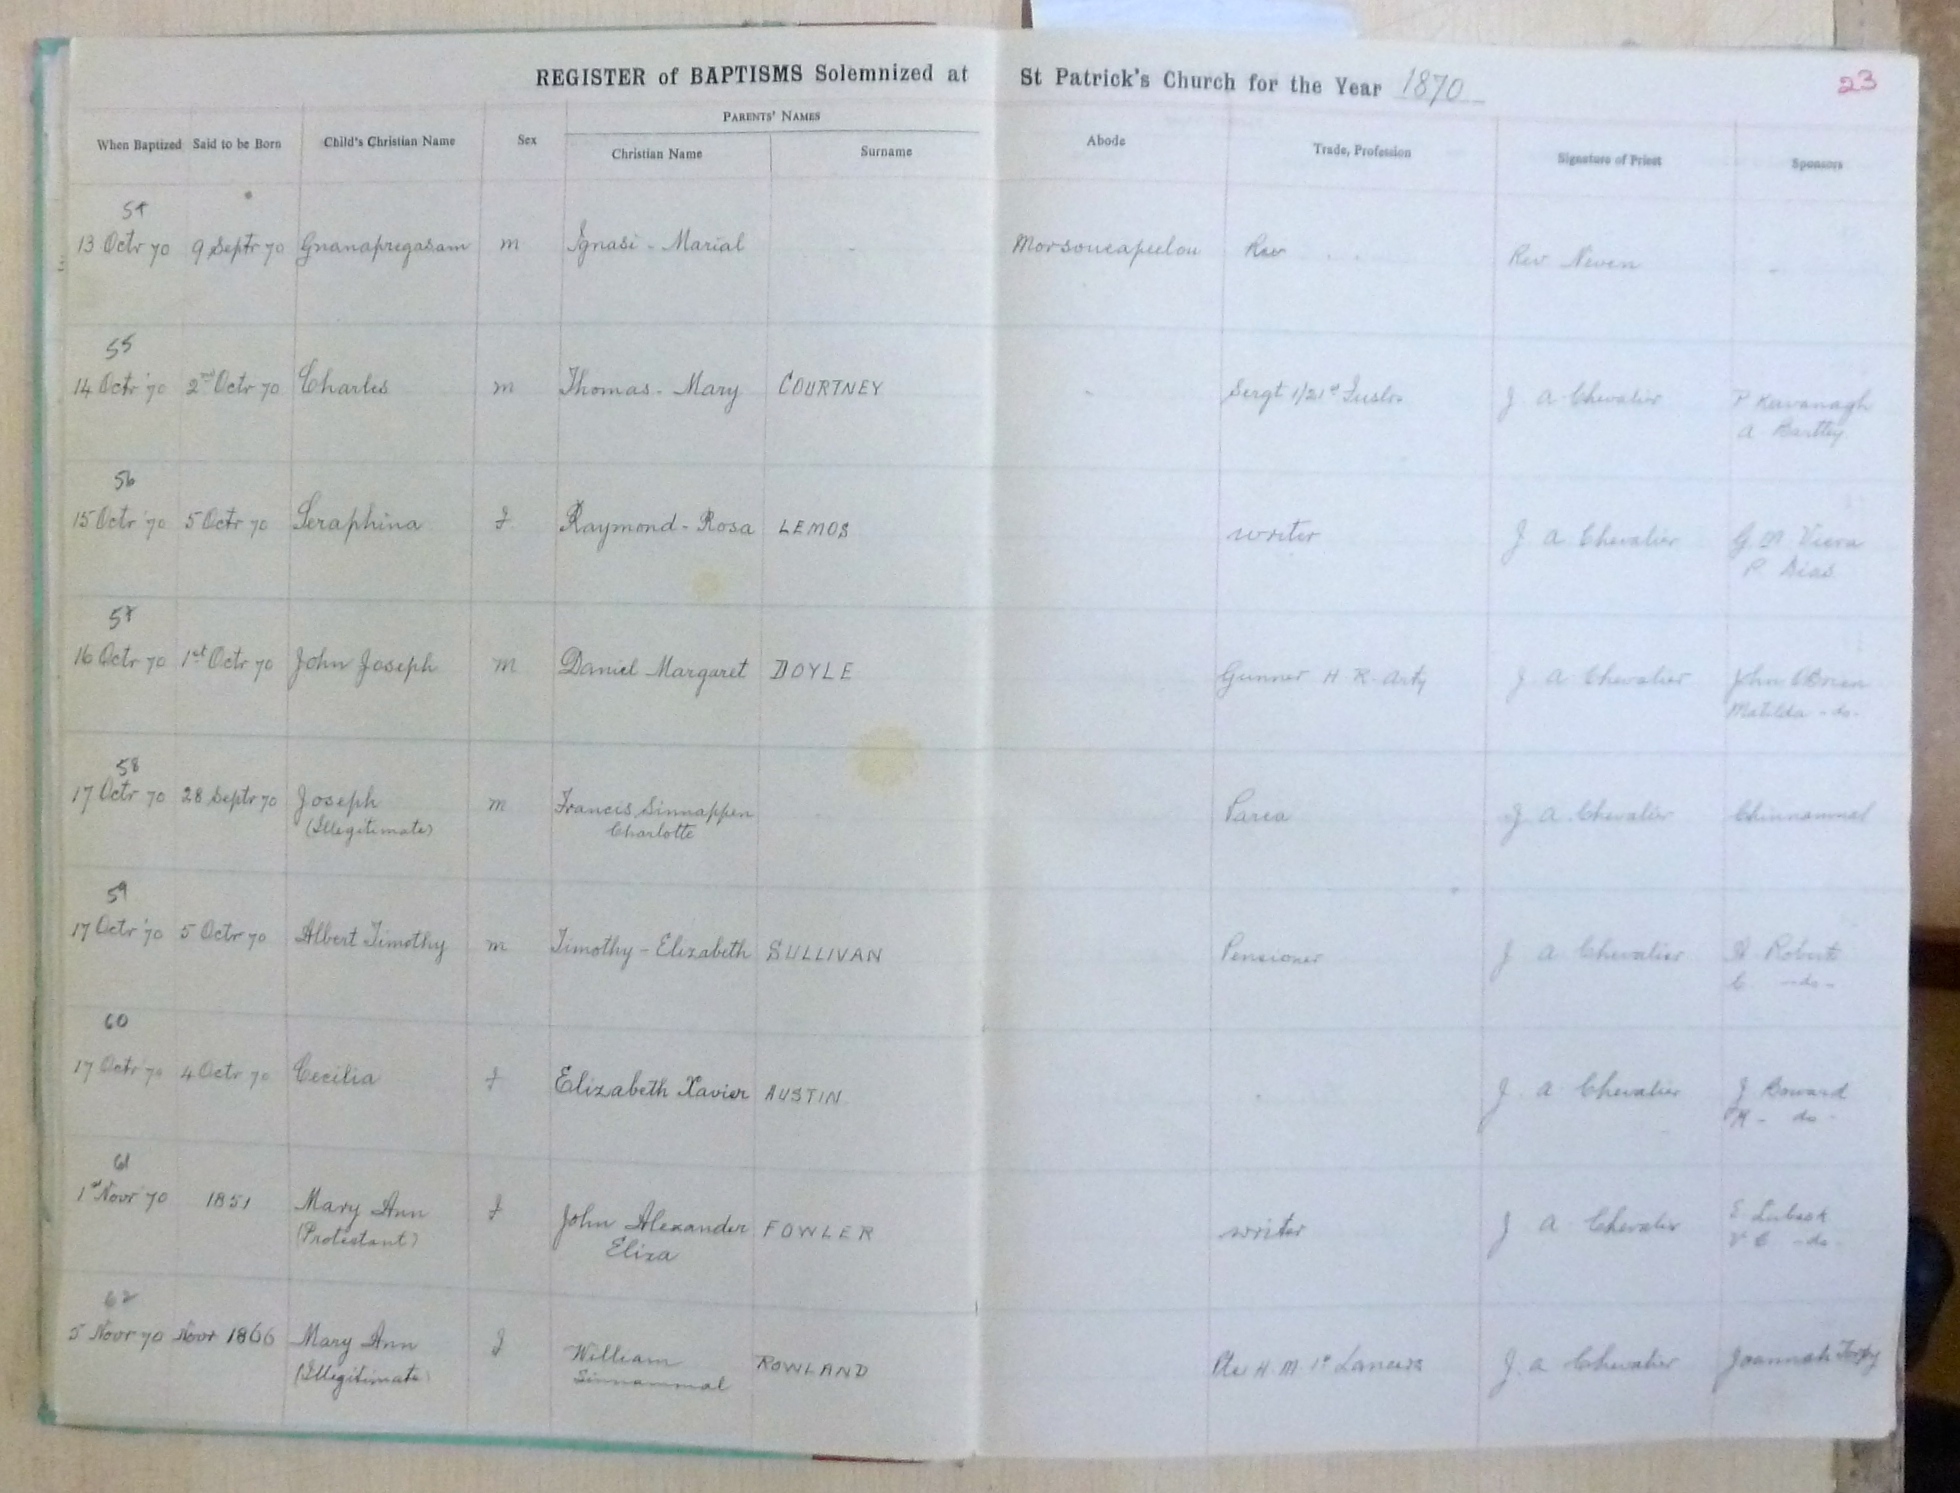 REGISTER of BAPTISMS Solemnized at St Patrick's Church for the Year 1870
23
When Baptized Said to be Born Child's Christian Name Sex PARENTS' NAMES Christian Name Surname Abode Trade, Profession Signature of Priest Sponsors
54
13 Octr 70 9 Septr 70 Gnanapregasam m Ignasi - Marial - Rev Neven -
55
14 Octr 70 2nd Octr 70 Charles m Thomas - Mary COURTNEY - Sergt 1/21st Fuslrs J A Chevalier P Kavanagh
A Bartley
56
15 Octr 70 5 Octr 70 Seraphina f Raymond - Rosa LEMOS writer J A Chevalier G M Viera
P Dias
57
16 Octr 70 1st Octr 70 John Joseph m Daniel Margaret DOYLE Gunner H R. Arty J A Chevalier John OBrien
Matilda - do -
58
17 Octr 70 28 Septr 70 Joseph m Francis Sinnappen Parea J A Chevalier Chinnammal
(Illegitimate) Charlotte
59
17 Octr 70 5 Octr 70 Albert Timothy m Timothy - Elizabeth SULLIVAN Pensioner J A Chevalier Robert
C - do -
60
17 Octr 70 4 Octr 70 Cecilia f Elizabeth Xavier AUSTIN J A Chevalier J Boward
M - do -
61
1st Novr 70 1851 Mary Ann f John Alexander FOWLER writer J A Chevalier E Lubeck
(Protestant) Eliza V C - do -
62
5 Novr 70 Novr 1866 Mary Ann f William ROWLAND Pte H. M 1st Lancers J. A Chevalier Joannah
(Illegitimate) Sinnammal